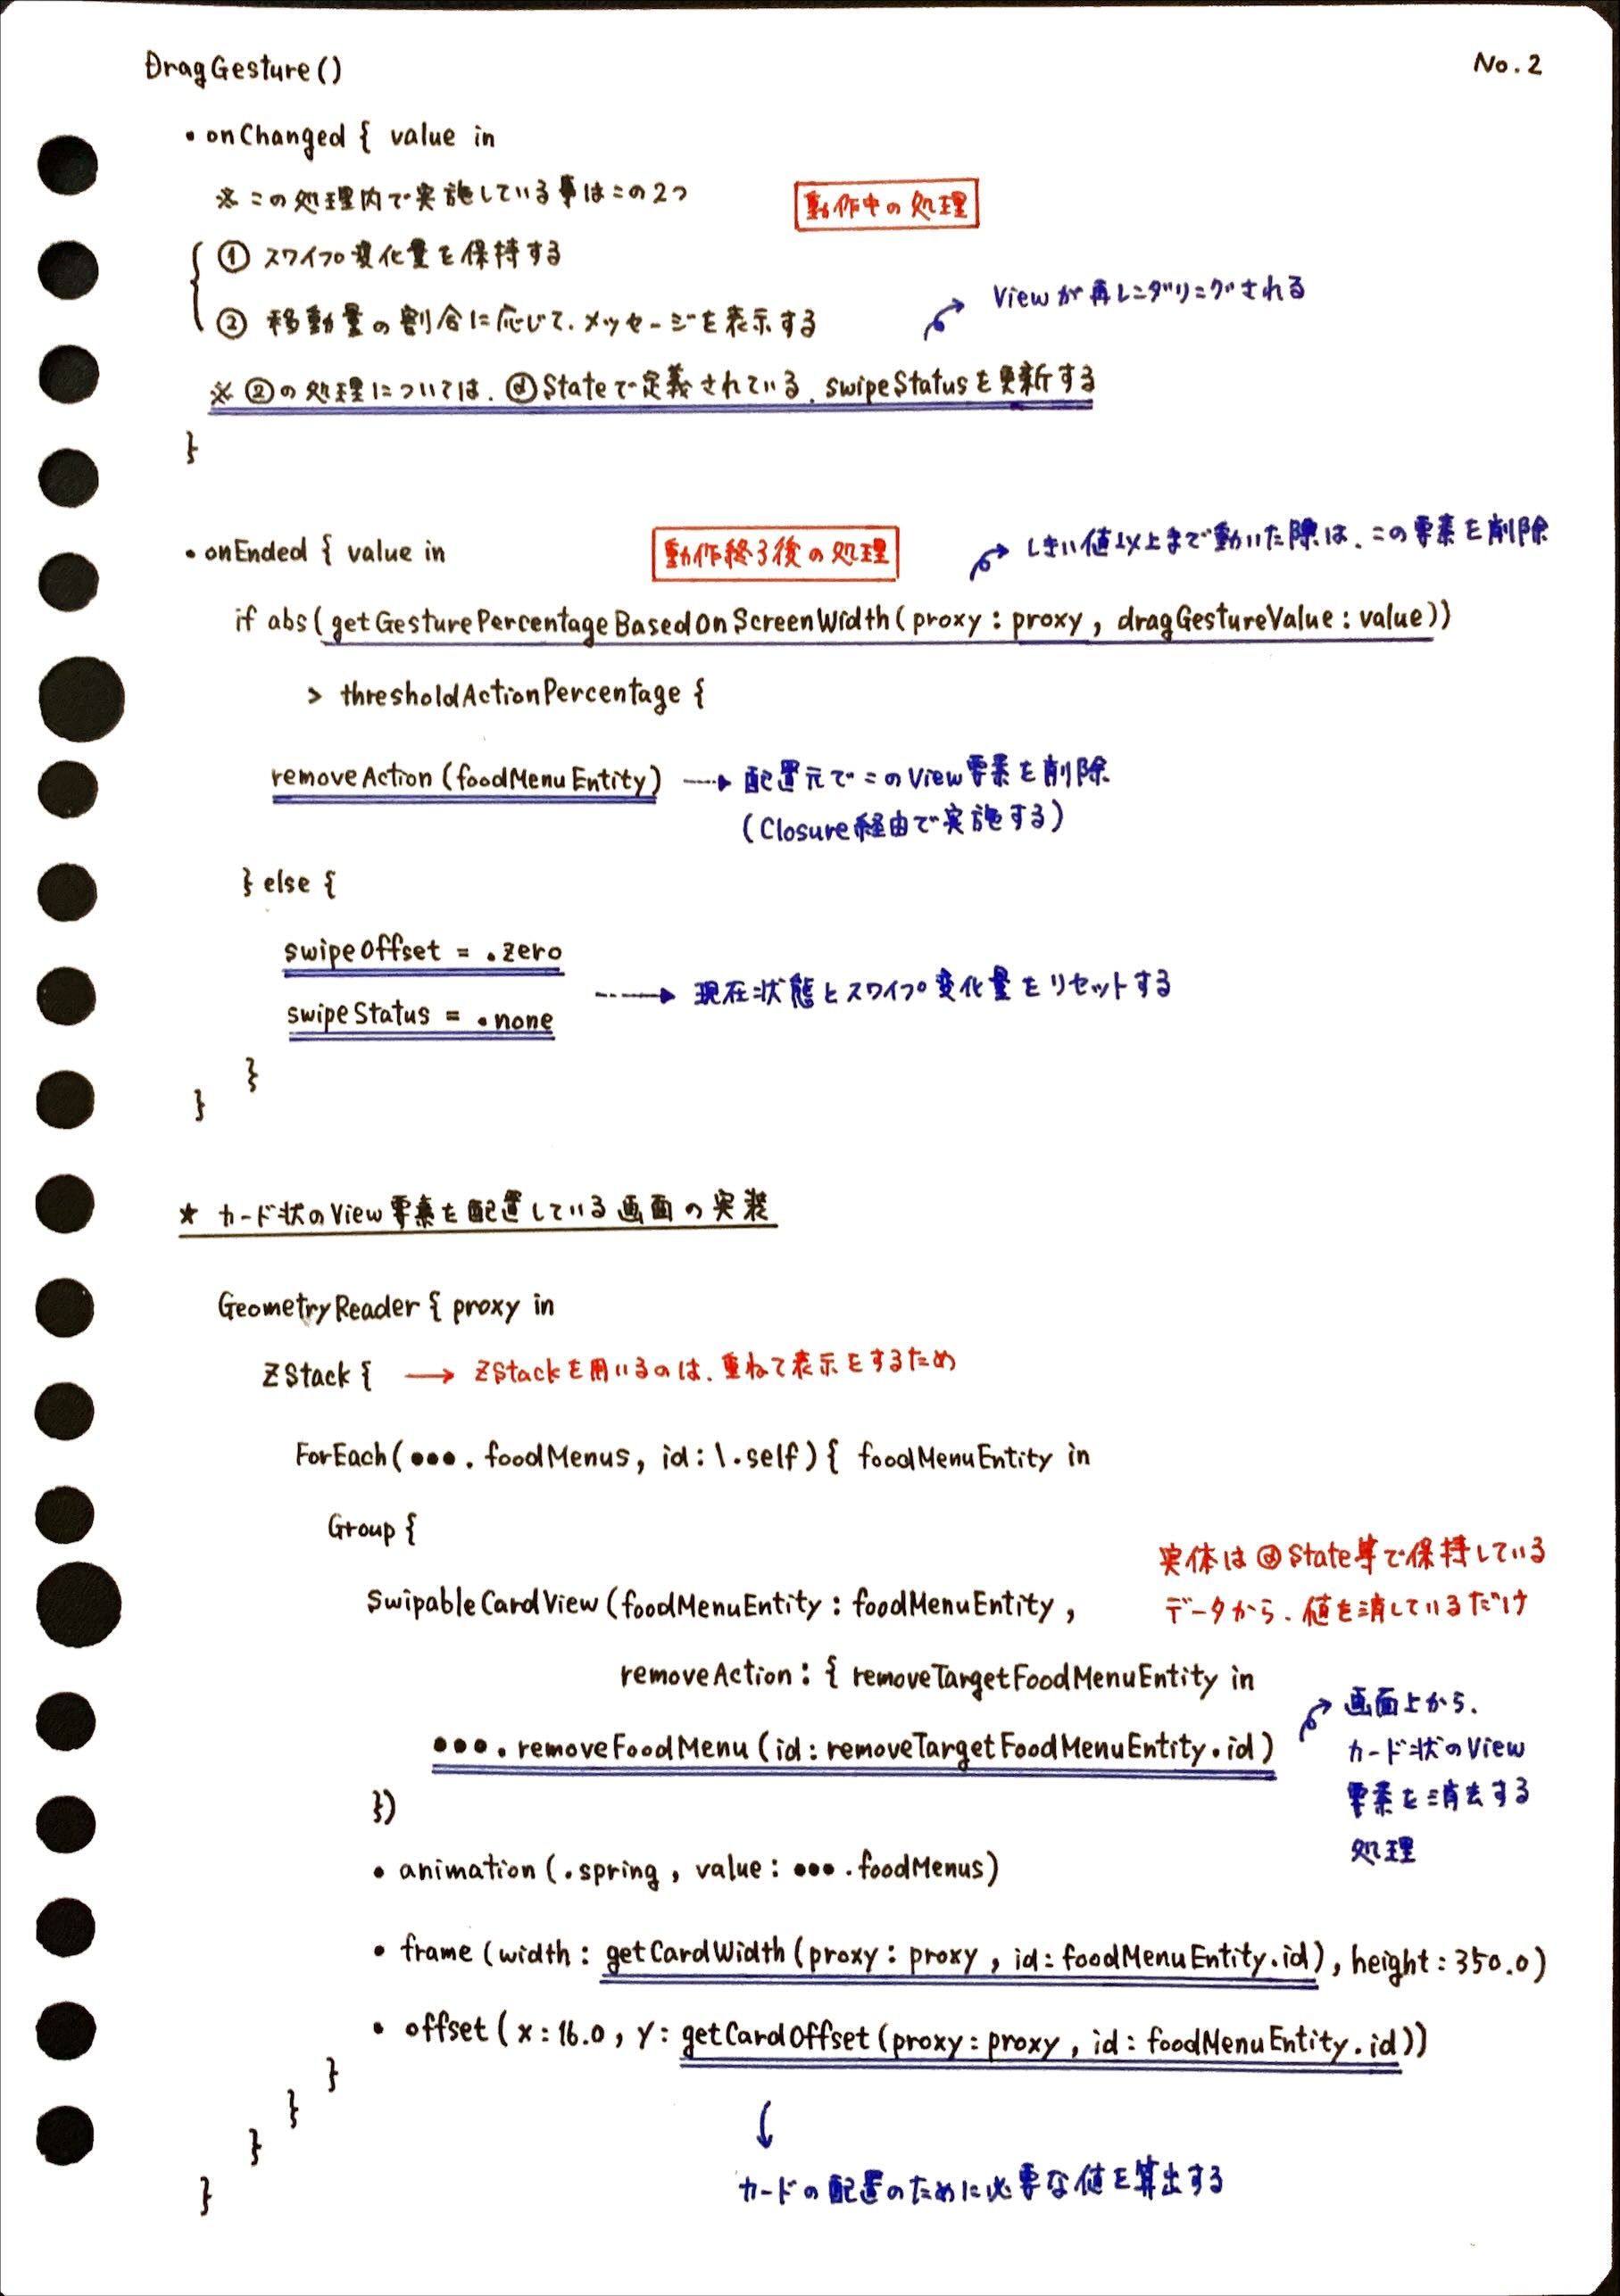 DragGesture()
No.2
• onChanged { value in
※ この処理内で実施している事はこの2つ
動作中の処理
① スワイプ変化量を保持する
② 移動量の割合に応じて、メッセージを表示する
Viewが再レンダリングされる
※ ②の処理については、@Stateで定義されている、swipeStatusを更新する
}
• onEnded { value in
動作終了後の処理
しきい値以上まで動いた際は、この要素を削除
if abs(getGesturePercentageBasedOnScreenWidth(proxy: proxy, dragGestureValue: value))
> thresholdActionPercentage {
removeAction(foodMenuEntity)
配置元でこのView要素を削除
(Closure経由で実施する)
} else {
swipeOffset = .zero
swipeStatus = .none
現在状態とスワイプ変化量をリセットする
}
}
★ カード状のView要素を配置している画面の実装
GeometryReader { proxy in
ZStack { → ZStackを用いるのは、重ねて表示をするため
ForEach(●●●.foodMenus, id: \.self) { foodMenuEntity in
Group {
実体は@State等で保持している
データから、値を消しているだけ
SwipableCardView(foodMenuEntity: foodMenuEntity,
removeAction: { removeTargetFoodMenuEntity in
●●●.removeFoodMenu(id: removeTargetFoodMenuEntity.id)
画面上から、
カード状のView
要素を消去する
処理
})
• animation(.spring, value: ●●●.foodMenus)
• frame(width: getCardWidth(proxy: proxy, id: foodMenuEntity.id), height: 350.0)
• offset(x: 16.0, y: getCardOffset(proxy: proxy, id: foodMenuEntity.id))
}
}
}
}
カードの配置のために必要な値を算出する